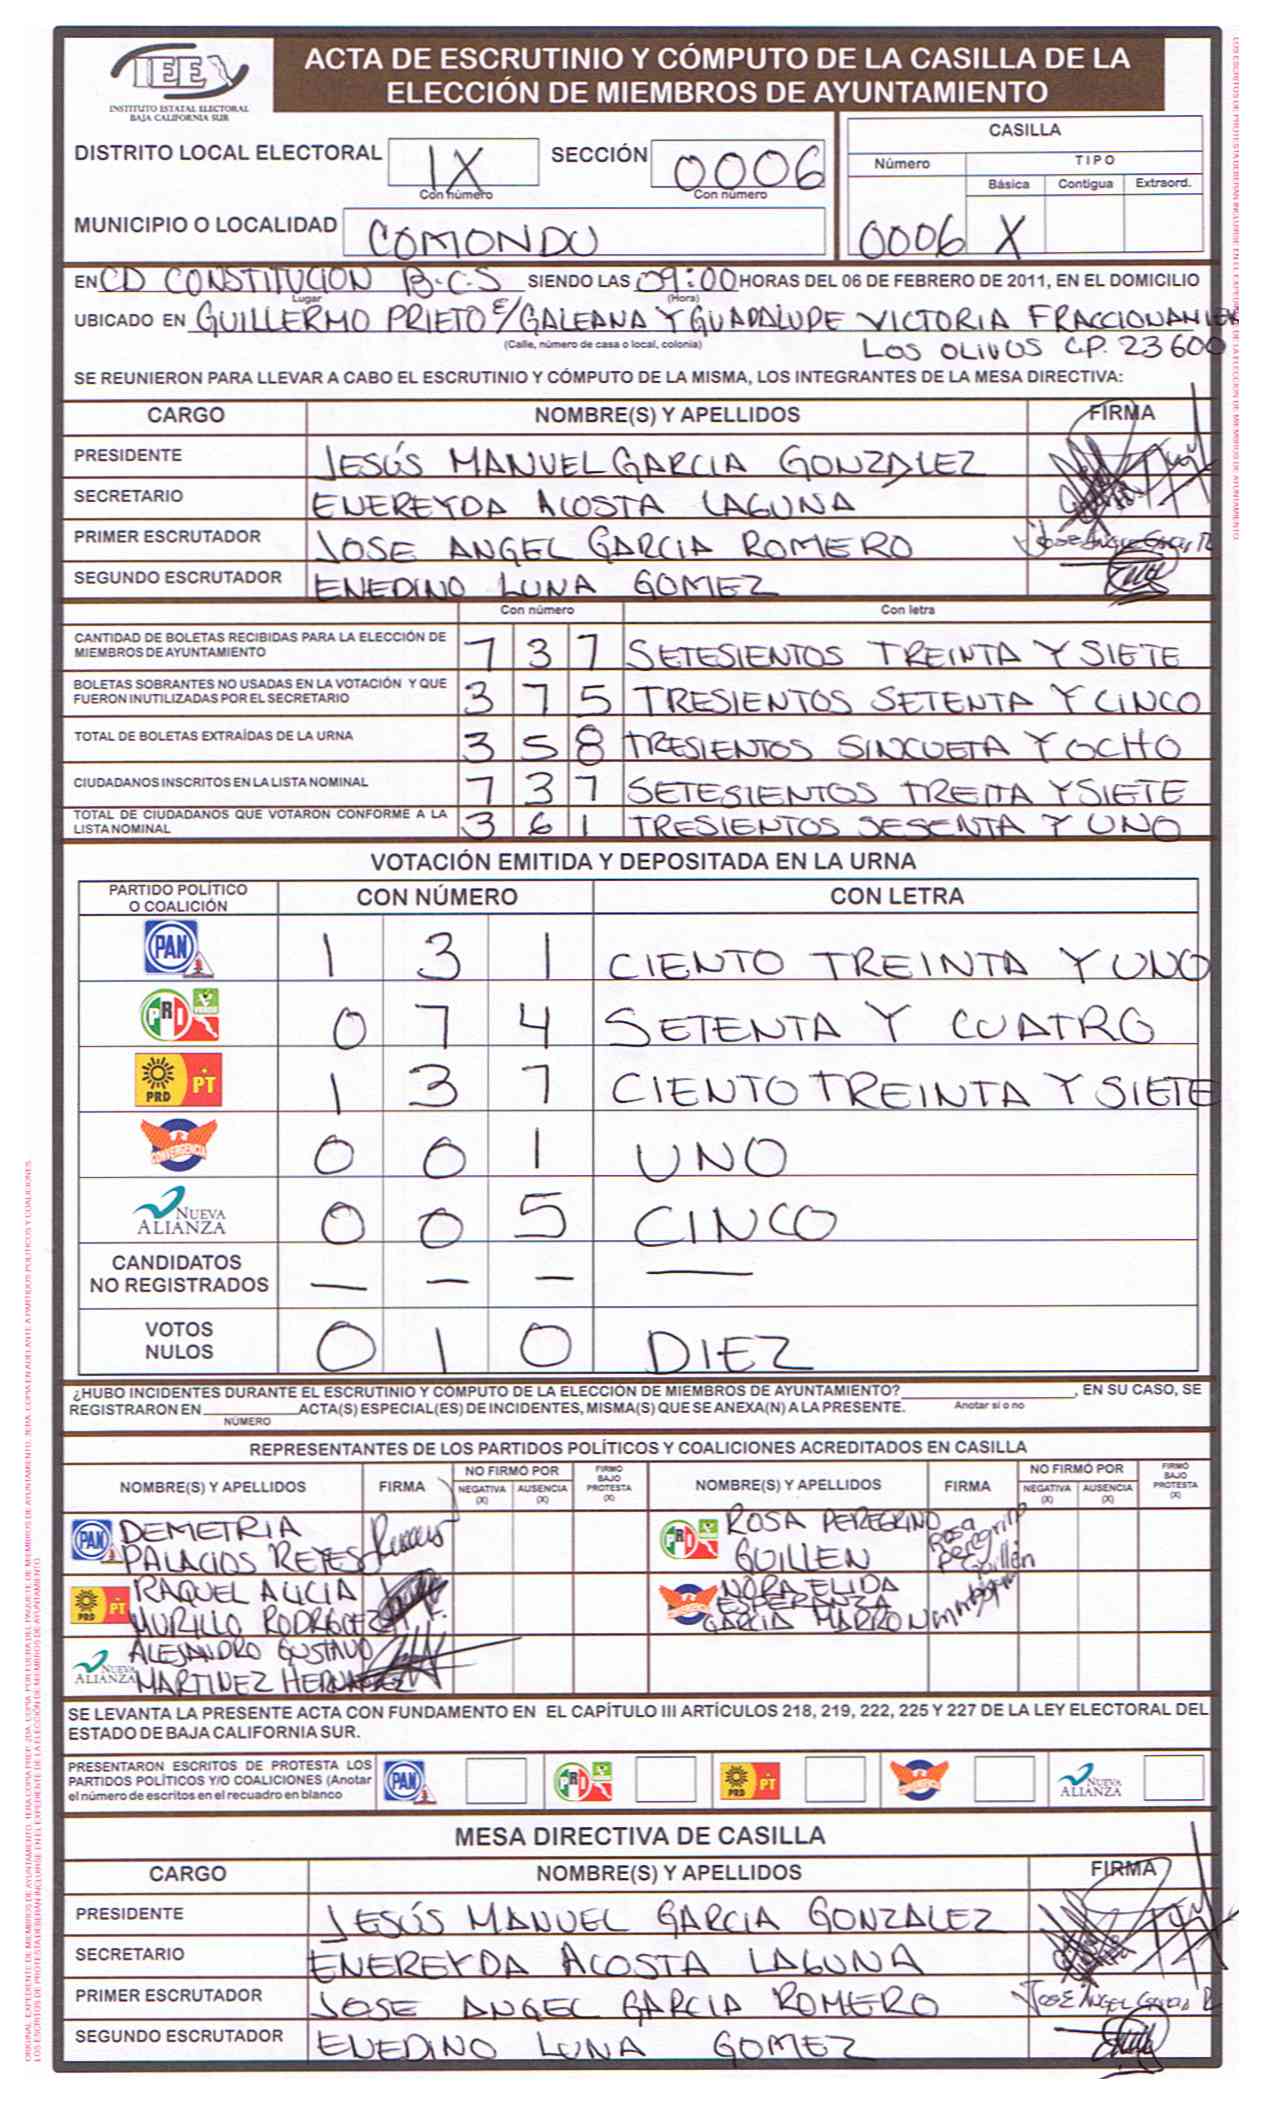 IEE
INSTITUTO ESTATAL ELECTORAL
BAJA CALIFORNIA SUR
ACTA DE ESCRUTINIO Y CÓMPUTO DE LA CASILLA DE LA
ELECCIÓN DE MIEMBROS DE AYUNTAMIENTO
DISTRITO LOCAL ELECTORAL IX SECCIÓN 0006
Con número Con número
MUNICIPIO O LOCALIDAD COMONDU
CASILLA
Número TIPO
Básica Contigua Extraord.
0006 X
EN CD CONSTITUCION B.C.S SIENDO LAS 09:00 HORAS DEL 06 DE FEBRERO DE 2011, EN EL DOMICILIO
Lugar (Hora)
UBICADO EN GUILLERMO PRIETO E/GALEANA Y GUADALUPE VICTORIA
(Calle, número de casa o local, colonia) LOS OLIVOS C.P. 23600
SE REUNIERON PARA LLEVAR A CABO EL ESCRUTINIO Y CÓMPUTO DE LA MISMA, LOS INTEGRANTES DE LA MESA DIRECTIVA:
CARGO NOMBRE(S) Y APELLIDOS FIRMA
PRESIDENTE JESÚS MANUEL GARCIA GONZALEZ
SECRETARIO ENEREYDA ACOSTA LAGUNA
PRIMER ESCRUTADOR JOSE ANGEL GARCIA ROMERO
SEGUNDO ESCRUTADOR ENEDINO LUNA GOMEZ
Con número Con letra
CANTIDAD DE BOLETAS RECIBIDAS PARA LA ELECCIÓN DE
MIEMBROS DE AYUNTAMIENTO 7 3 7 SETESIENTOS TREINTA Y SIETE
BOLETAS SOBRANTES NO USADAS EN LA VOTACIÓN Y QUE
FUERON INUTILIZADAS POR EL SECRETARIO 3 7 5 TRESIENTOS SETENTA Y CINCO
TOTAL DE BOLETAS EXTRAÍDAS DE LA URNA 3 5 8 TRESIENTOS SINCUETA Y OCHO
CIUDADANOS INSCRITOS EN LA LISTA NOMINAL 7 3 7 SETESIENTOS TREITA Y SIETE
TOTAL DE CIUDADANOS QUE VOTARON CONFORME A LA
LISTA NOMINAL 3 6 1 TRESIENTOS SESENTA Y UNO
VOTACIÓN EMITIDA Y DEPOSITADA EN LA URNA
PARTIDO POLÍTICO
O COALICIÓN CON NÚMERO CON LETRA
PAN 1 3 1 CIENTO TREINTA Y UNO
PRI VERDE 0 7 4 SETENTA Y CUATRO
PRD PT 1 3 7 CIENTO TREINTA Y SIETE
CONVERGENCIA 0 0 1 UNO
NUEVA ALIANZA 0 0 5 CINCO
CANDIDATOS
NO REGISTRADOS — — — —
VOTOS
NULOS 0 1 0 DIEZ
¿HUBO INCIDENTES DURANTE EL ESCRUTINIO Y CÓMPUTO DE LA ELECCIÓN DE MIEMBROS DE AYUNTAMIENTO? , EN SU CASO, SE
REGISTRARON EN ACTA(S) ESPECIAL(ES) DE INCIDENTES, MISMA(S) QUE SE ANEXA(N) A LA PRESENTE. Anotar si o no
NÚMERO
REPRESENTANTES DE LOS PARTIDOS POLÍTICOS Y COALICIONES ACREDITADOS EN CASILLA
NOMBRE(S) Y APELLIDOS FIRMA NO FIRMÓ POR NEGATIVA (X) AUSENCIA (X) FIRMÓ BAJO PROTESTA (X) NOMBRE(S) Y APELLIDOS FIRMA NO FIRMÓ POR NEGATIVA (X) AUSENCIA (X) FIRMÓ BAJO PROTESTA (X)
PAN DEMETRIA
PALACIOS REYES
PRI ROSA PEREGRINO
GUILLEN Rosa
Peregrino
Guillén
PRD PT RAQUEL ALICIA
MURILLO RODRÍGUEZ
CONVERGENCIA NORA ELIDA
ESPERANZA
GARCIA MARRON
NUEVA ALIANZA ALEJANDRO GUSTAVO
MARTINEZ HERNANDEZ
SE LEVANTA LA PRESENTE ACTA CON FUNDAMENTO EN EL CAPÍTULO III ARTÍCULOS 218, 219, 222, 225 Y 227 DE LA LEY ELECTORAL DEL
ESTADO DE BAJA CALIFORNIA SUR.
PRESENTARON ESCRITOS DE PROTESTA LOS
PARTIDOS POLÍTICOS Y/O COALICIONES (Anotar
el número de escritos en el recuadro en blanco
PAN PRI PRD PT CONVERGENCIA NUEVA ALIANZA
MESA DIRECTIVA DE CASILLA
CARGO NOMBRE(S) Y APELLIDOS FIRMA
PRESIDENTE JESÚS MANUEL GARCIA GONZALEZ
SECRETARIO ENEREYDA ACOSTA LAGUNA
PRIMER ESCRUTADOR JOSE ANGEL GARCIA ROMERO
SEGUNDO ESCRUTADOR ENEDINO LUNA GOMEZ